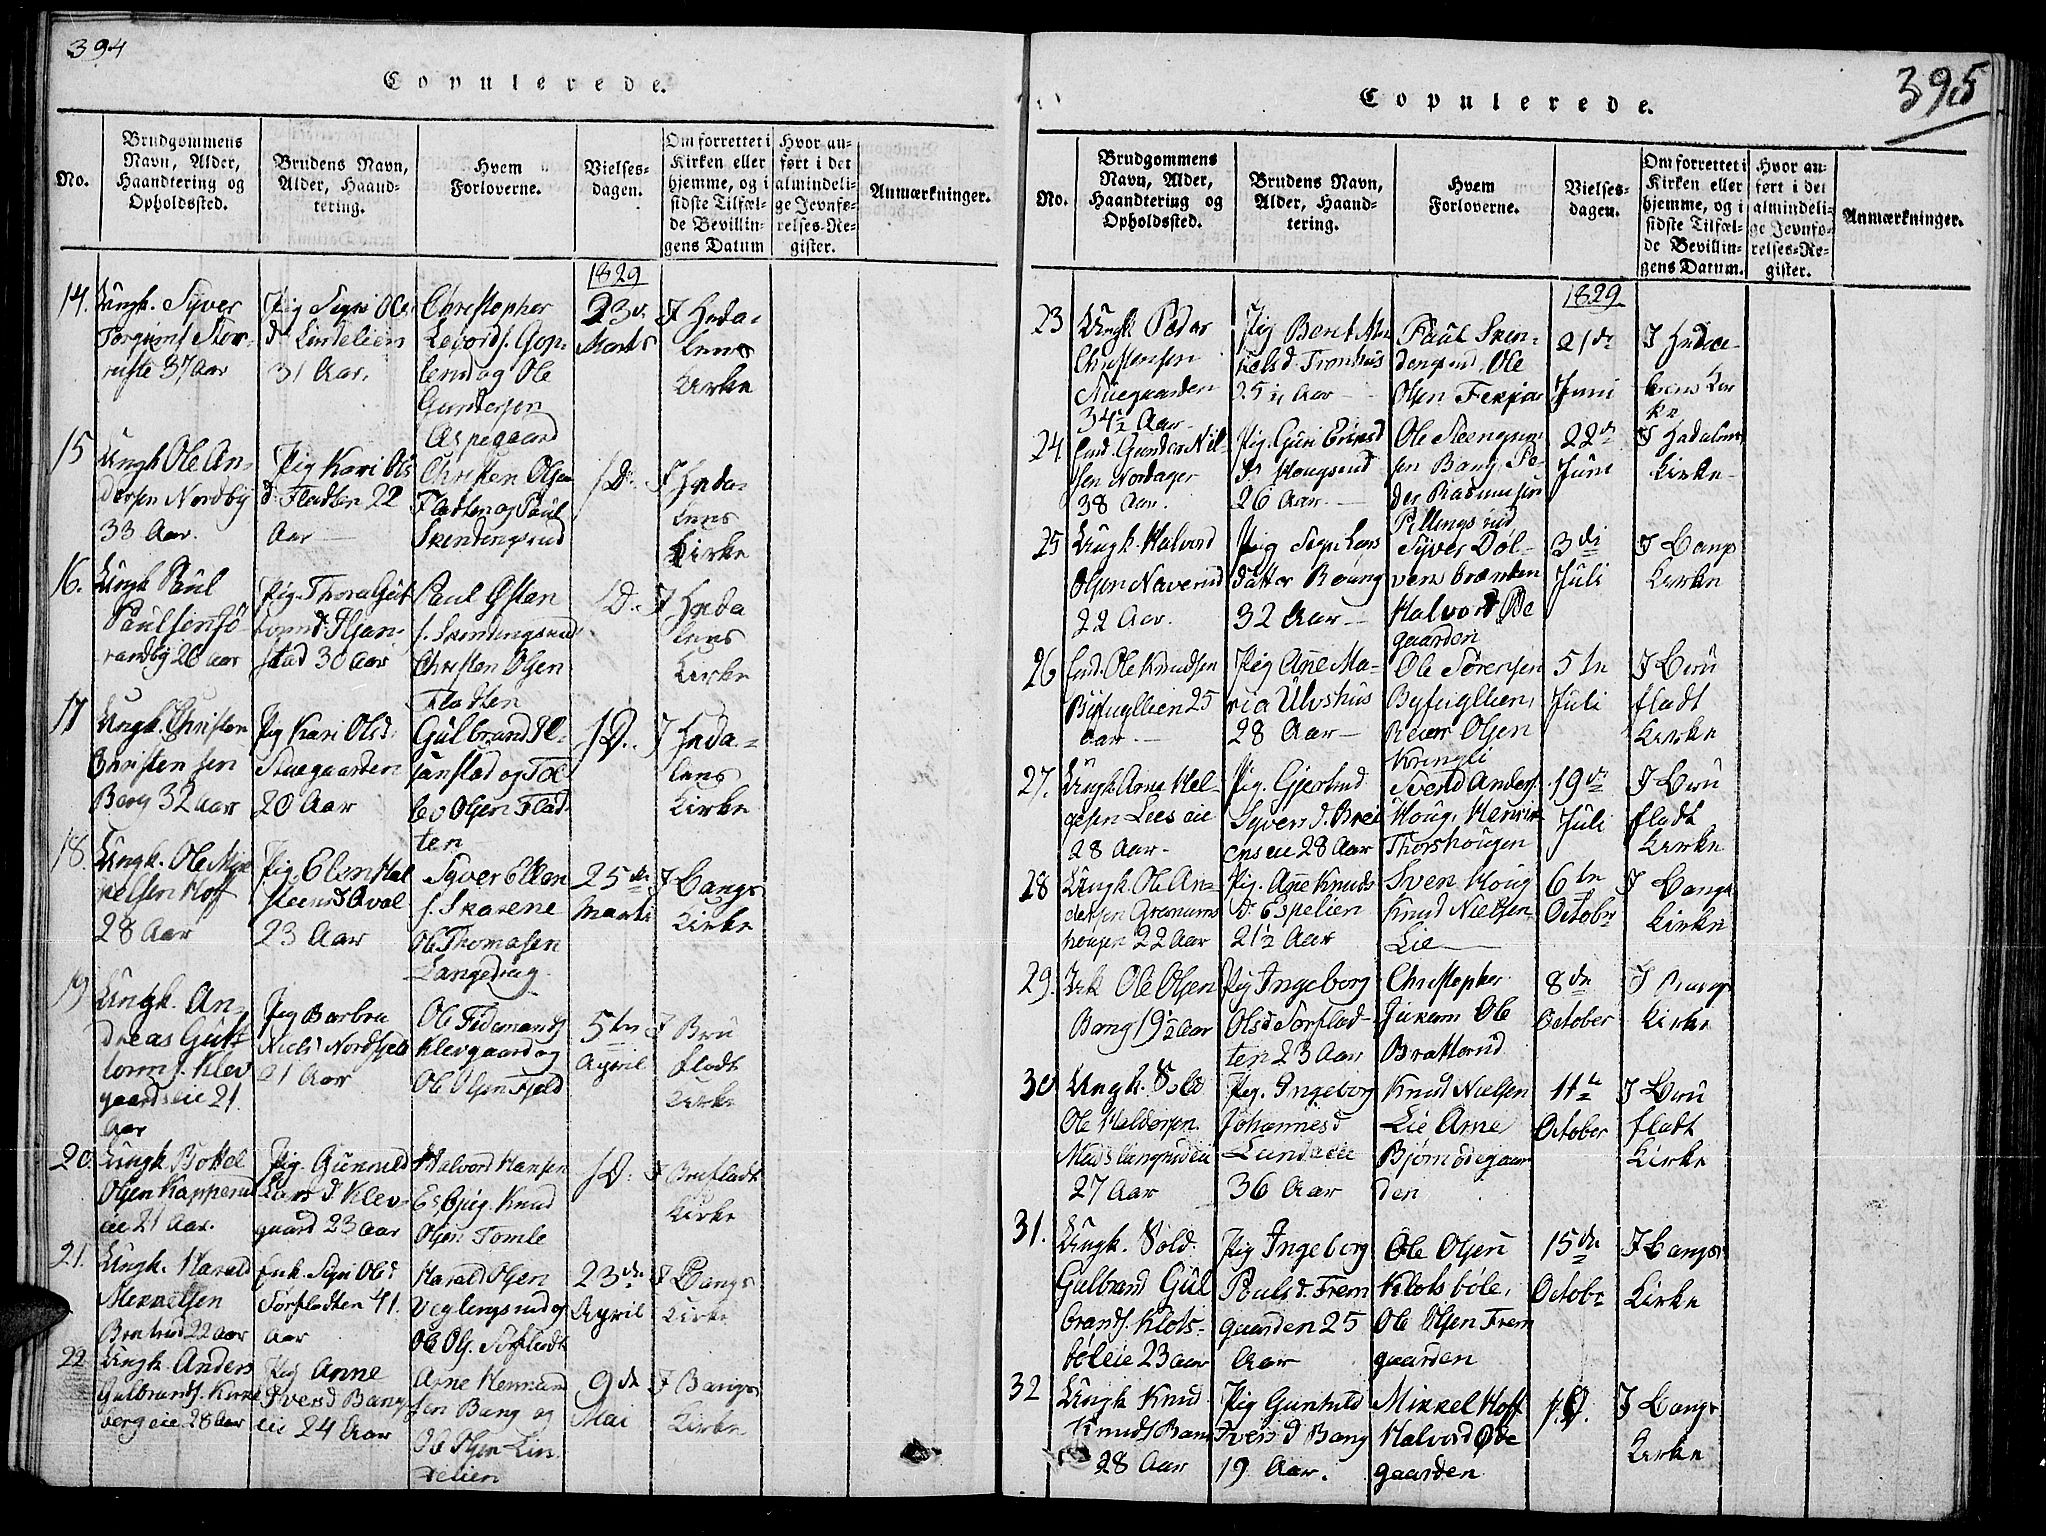 394
Copulerede.
No.
Brudgommens
Navn, Alder,
Haandtering og
Opholdssted.
Brudens Navn,
Alder, Haand-
tering.
Hvem
Forloverne.
Vielses-
dagen.
Om forrettet i
Kirken eller
hjemme, og i
sidste Tilfæl-
de Bevillin-
gens Datum
Hvor an-
ført i det
almindeli-
ge Jevnfø-
relses-Re-
gister.
Anmærkninger.
1829
14.
Ungk. Syver
Torgiuns Stor-
ruste 37 Aar
Pig Sigri Ols
d. Lindelien
31 Aar.
Christopher
Levords. Gop-
lerud og Ole
Gundersen
Aspegaard
23d
Marts
I Heda-
lens
Kirke
15
Ungk Ole An-
dersen Nordby
33 Aar.
Pig Kari Ols
d. Fladten 22
Aar
Christen Olsen
Fladten og Paul
Skendengsrud
/D.
I Heda-
lens
Kirke
16.
Ungk Paul
Paulsen Sø-
randby 26 aar
Pig. Thora Gut
tormd. Iljan-
stad 30 Aar
Paul Østen
s. Skendengsrud
Christen Olsen
Fladten
/D.
I Heda
lens
Kirke
17
Ungk. Christen
Christensen
Berg 32 aar
Pig Kari Olsd.
Stuegaarden
20 Aar
Gulbrand Il-
janstad og Tol
lev Olsen Flad-
ten
/D.
I Heda-
lens
Kirke
18.
Ungk. Ole Mik
kelsen Hoff
28 Aar
Pig Elen Hal
steensd Aval
23 Aar
Syver Ellen
s. Skarene
Ole Thomasen
Langedrag
25de
Marts
I Bangs
Kirke
19
Ungk. An-
dreas Gut
torms. Klev
gaards eie 21
Aar
Pig Barbra
Niels Nordfjeld
21 Aar
Ole Tidemands
Klevgaard og
Ole Olsen Fjeld
5te
April
I Bru
fladt
Kirke
20.
Ungk. Bottel
Olsen Kapperud
eie 21 Aar.
Pig. Gunnild
Lars d Klev-
gaard 23 aar
Halvord Hansen
Espjig. Knud
Olsen Tomle
/D.
I Brufladt
Kirke
21.
Ungk. Harald
Mikkelsen
Bratrud 22 aar
Enk. Sigri Olsd
Sørfladten 41.
Aar
Harald Olsen
Veglengsrud og
Ole Ols. Sørfladt
23de
April
I Bangs
Kirke
22
Ungk. Anders
Gulbrands. Kirke
berg eie 28 Aar
Pig Anne
Iversd Bang
eie 24 Aar
Arne Hermund
sen Bang og
Ole Olsen Lin
delien
9de
Mai
I Bangs
Kirke
395
Copulerede.
No.
Brudgommens
Navn, Alder,
Haandtering og
Opholdssted.
Brudens Navn,
Alder, Haand-
tering.
Hvem
Forloverne.
Vielses-
dagen.
Om forrettet i
Kirken eller
hjemme, og i
sidste Tilfæl-
de Bevillin-
gens Datum.
Hvor an-
ført i det
almindeli-
ge Jevnfø-
relses-Re-
gister.
Anmærkninger.
1829
23
Ungk Peder
Christensen
Niegaarden
34½ Aar
Pig Berit Mik
kels d. Tronhus
25 Aar
Paul Sken-
dengsrud, Ole
Olsen Fekjar
21de
Juni
I Hedae-
lens Kir
ke
24
Enk. Gunder Nil-
sen Nordager
38 Aar.
Pig. Guri Erics
d. Hougsrud
26 Aar
Ole Steengrim
sen Bang, Pe-
der Rasmusen
Pillingsrud
22de
Juni
I Hedalens
Kirke
25
Ungk. Halvord
Olsen Naverud
22 Aar.
Pig Sigri Lars
datter Roung
32 Aar
Syver Døl-
vens brænden
Halvord Øde
gaarden
3di
Juli
I Bangs
Kirke
26
Enk. Ole Knudsen
Byfugllien 25
Aar
Pig Ane Ma-
ria Ulvshus
28 Aar
Ole Sørensen
Byfugllien,
Reier Olsen
Kringli
5te
Juli
I Bru
fladt
Kirke
27.
Ungk Arne Hel-
gesen Lies eie
28 Aar
Pig. Gjertrud
Syvers d. Brei
ens eie 28 Aar
Svend Anders.
Houg. Henrik
Thorshougen
19de
Juli
I Bru
fladt
Kirke
28
Ungk. Ole An-
dersen Granums
hougen 22 Aar
Pig. Ane Knuds
d. Espelien
21½ Aar
Sven Houg
Knud Nielsen
Lie
6te
October
I Bangs
Kirke
29.
Ole Olsen
Bang 19½ Aar
Pig Ingeborg
Olsd Sørflad-
ten 23 Aar
Christopher
Juram Ole
Bratterud
8de
October
I Bangs
Kirke
30
Ungk. Sold
Ole Haldorsen
27 Aar
Pig. Ingeborg
Johannesd
Lunds eie
36 Aar
Knud Nielsen
Lie Arne
Bjørn Ødegaar
den
11te
October
I Bru
fladt
Kirke
31.
Ungk. Sold.
Gulbrand Gul
brands. Klots-
bøl eie 23 aar
Pig Ingeborg
Pouls d. Frem
gaarden 25
Aar
Ole Olsen
Klotsbøle,
Ole Olsen Frem
gaarden
15de
October
I Bangs
Kirke
32
Ungk Knud
Knuds Bang
28 Aar
Pig Gunhild
Ivers d Bang
19 Aar.
Mikkel Hoff
Halvord Øde
gaarden
/D.
I Bangs
Kirke